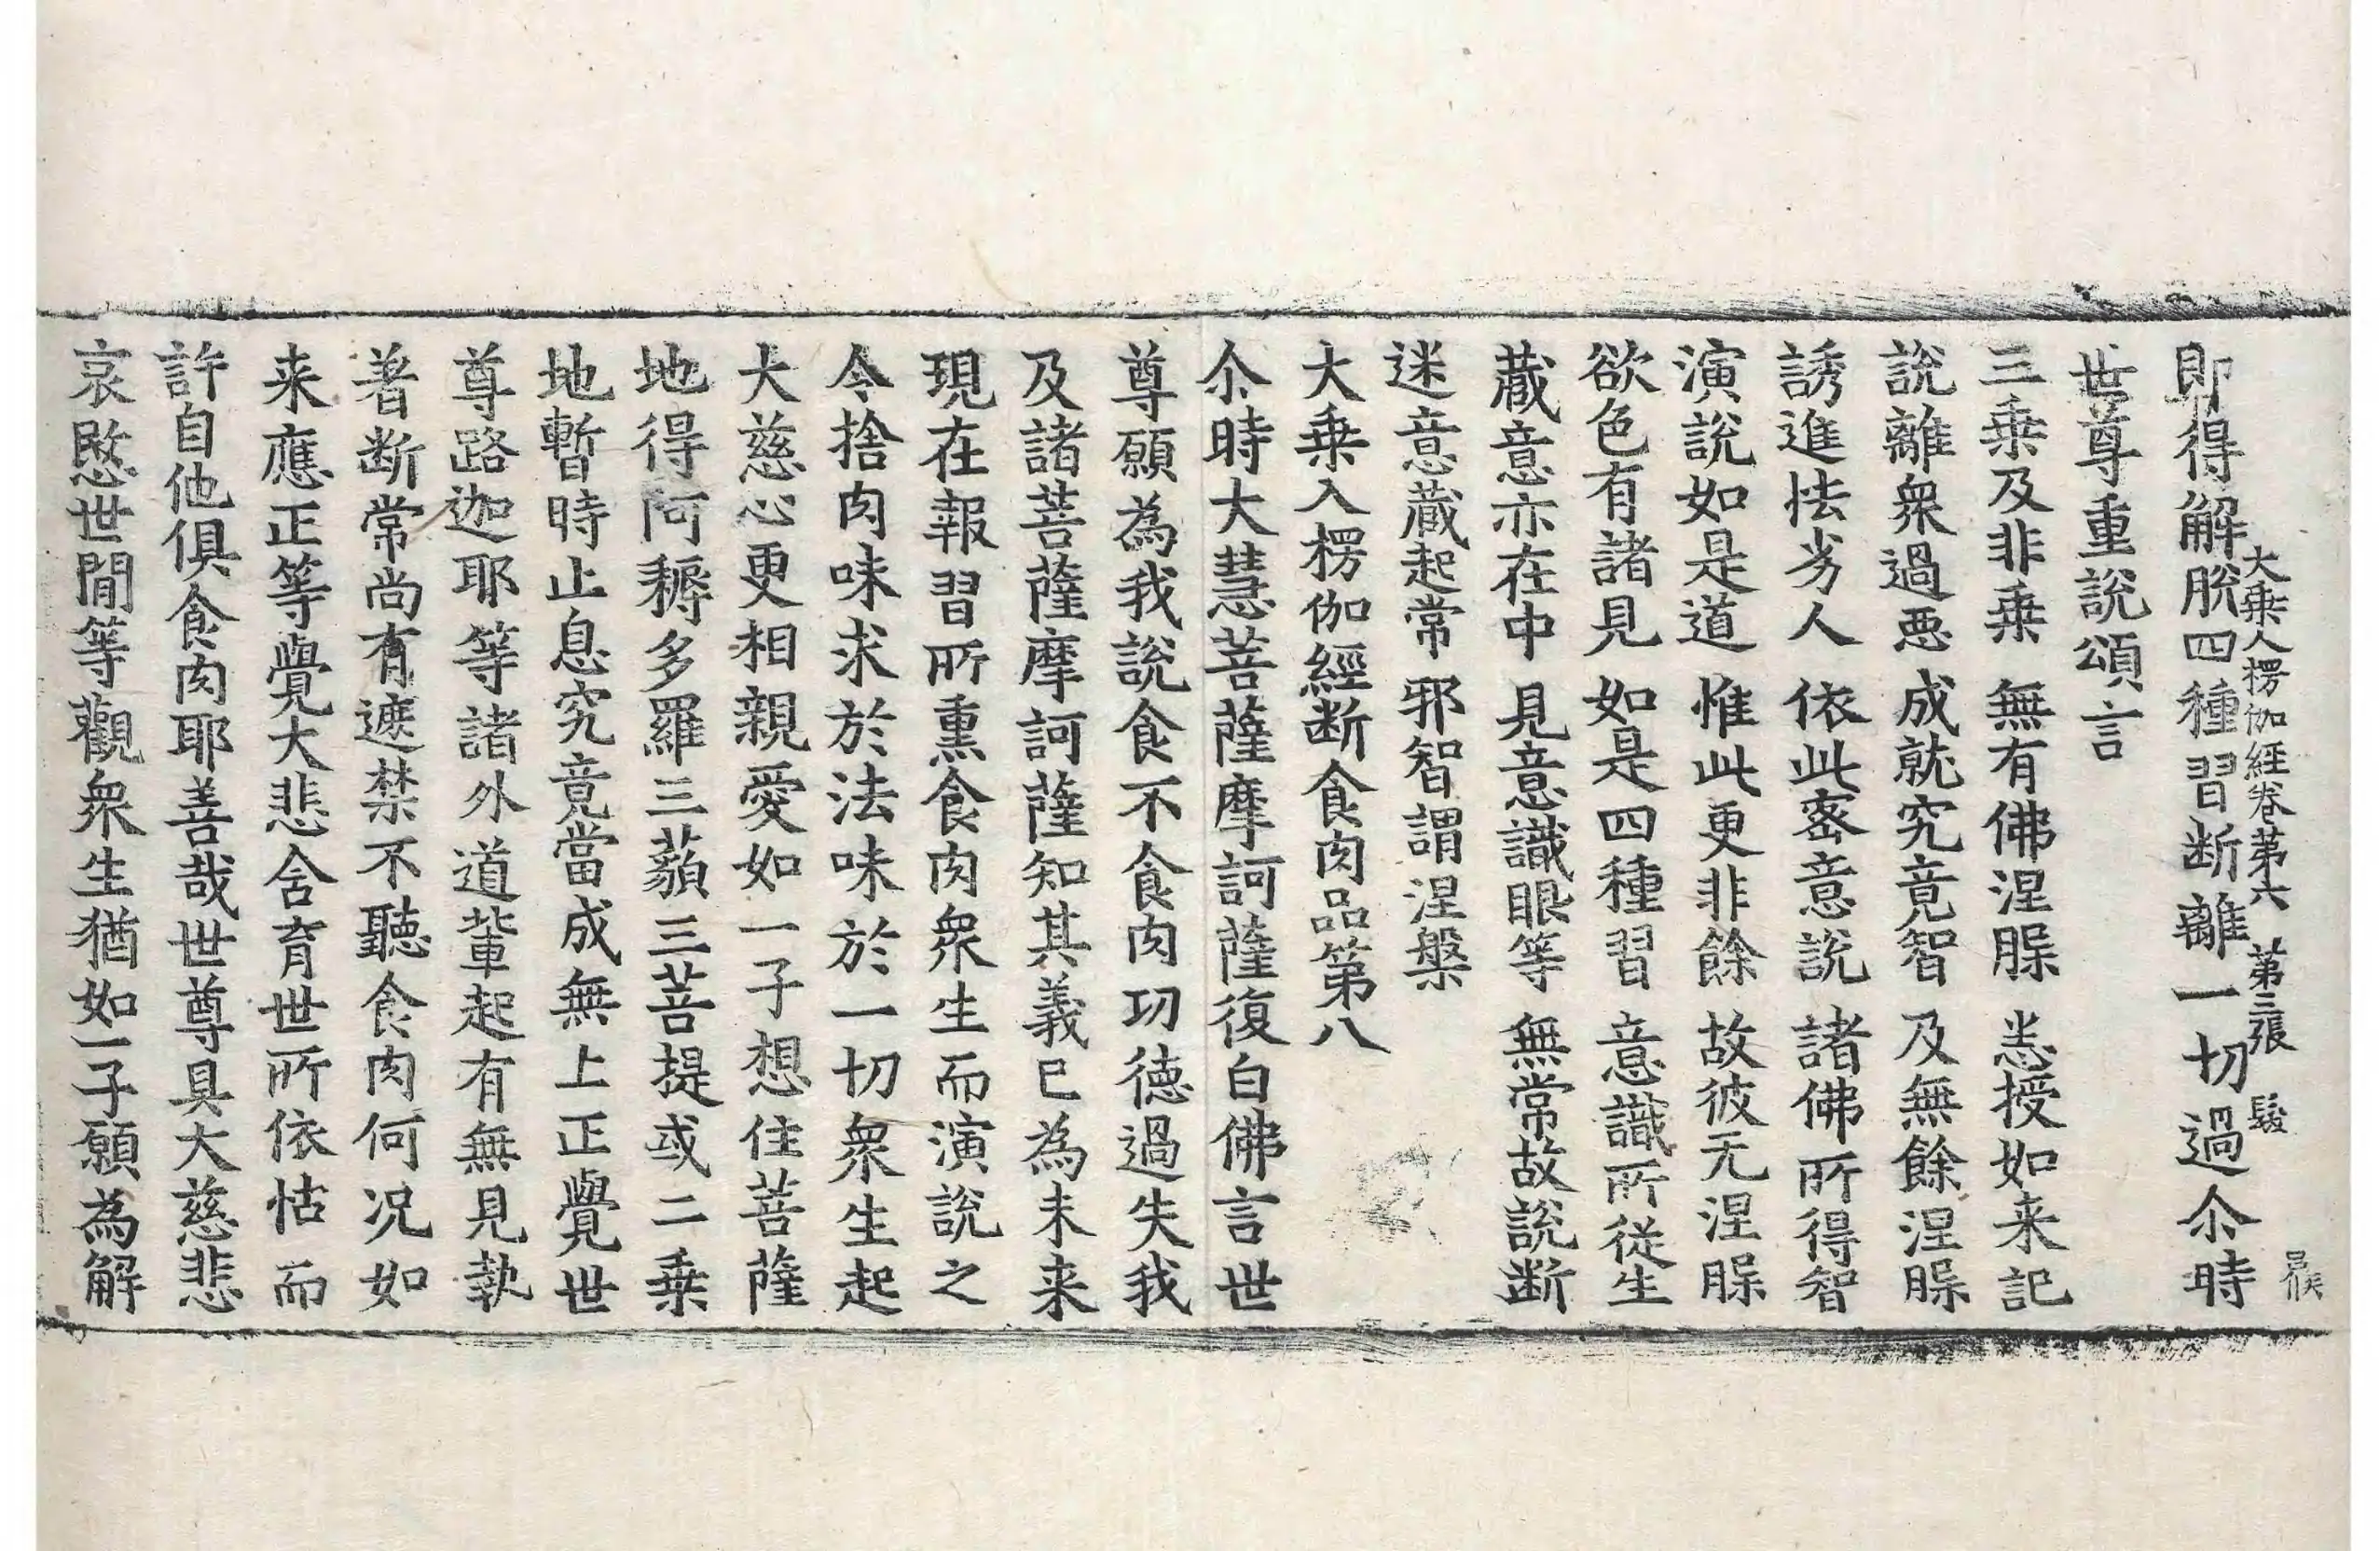 大乗入楞伽經卷第六 第三張 髮
即得解脫四種習断離一切過尒時
世尊重說頌言
三乗及非乗 無有佛涅脲 悉授如来記
說離衆過悪 成就究竟智 及無餘涅脲
誘進怯劣人 依此密意說 諸佛所得智
演說如是道 惟此更非餘 故彼无涅脲
欲色有諸見 如是四種習 意識所從生
蔵意亦在中 見意識眼等 無常故說断
迷意蔵起常 邪智謂涅槃
大乗入楞伽經断食肉品第八
尒時大慧菩薩摩訶薩復白佛言世
尊願為我說食不食肉功徳過失我
及諸菩薩摩訶薩知其義已為未来
現在報習所熏食肉衆生而演說之
令捨肉味求於法味於一切衆生起
大慈心更相親愛如一子想住菩薩
地得阿耨多羅三藐三菩提或二乗
地暫時止息究竟當成無上正覺世
尊路迦耶等諸外道輩起有無見執
著断常尚有遮禁不聽食肉何况如
来應正等覺大悲含育世所依怙而
許自他俱食肉耶善哉世尊具大慈悲
哀愍世間等觀衆生猶如一子願為解